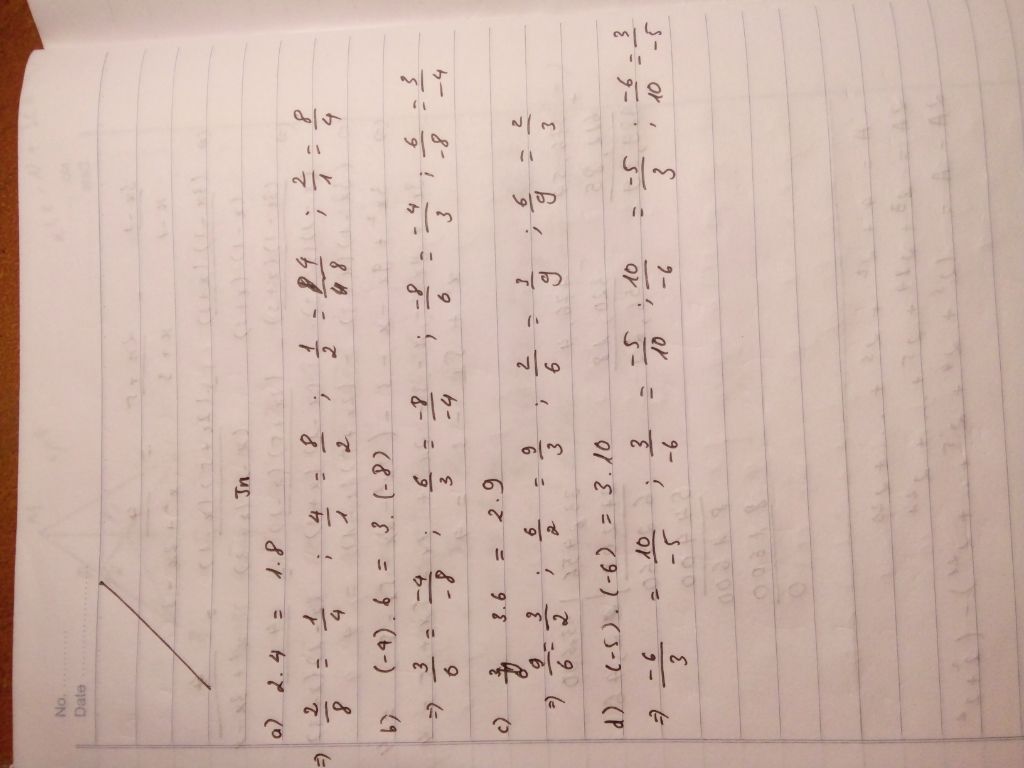 No.
Date
Jn
a) 2.4 = 1.8
⇒ 2/8 = 1/4 ; 4/1 = 8/2 ; 1/2 = 4/8 ; 2/1 = 8/4
b) (-4).6 = 3.(-8)
⇒ 3/6 = -4/-8 ; 6/3 = -8/-4 ; -8/6 = -4/3 ; 6/-8 = 3/-4
c) 3.6 = 2.9
⇒ 9/6 = 3/2 ; 6/2 = 9/3 ; 2/6 = 3/9 ; 6/9 = 2/3
d) (-5).(-6) = 3.10
⇒ -6/3 = 10/-5 ; 3/-6 = -5/10 ; 10/-6 = -5/3 ; -6/10 = 3/-5